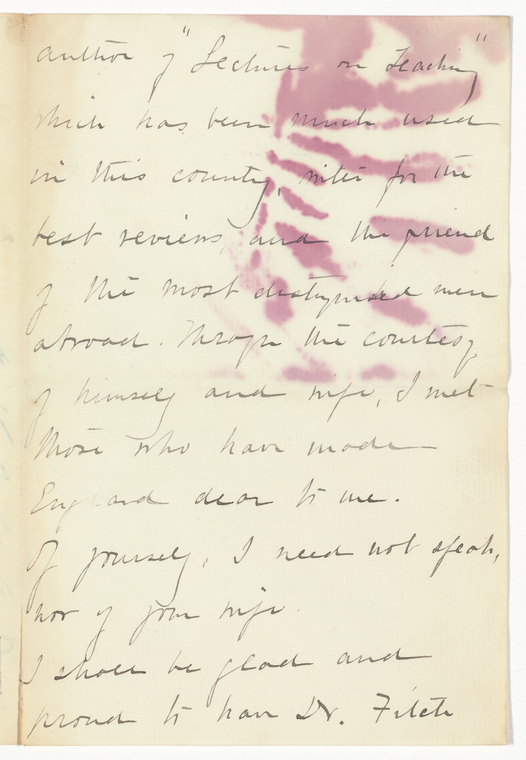 author of "Lectures on Teaching"
which has been much used
in this country, writer for the
best reviews, and the friend
of the most distinguished men
abroad. Through the courtesy
of himself and wife, I met
those who have made
England dear to me.
Of yourself, I need not speak,
nor of your wife.
I shall be glad and
proud to have Dr. Fitch